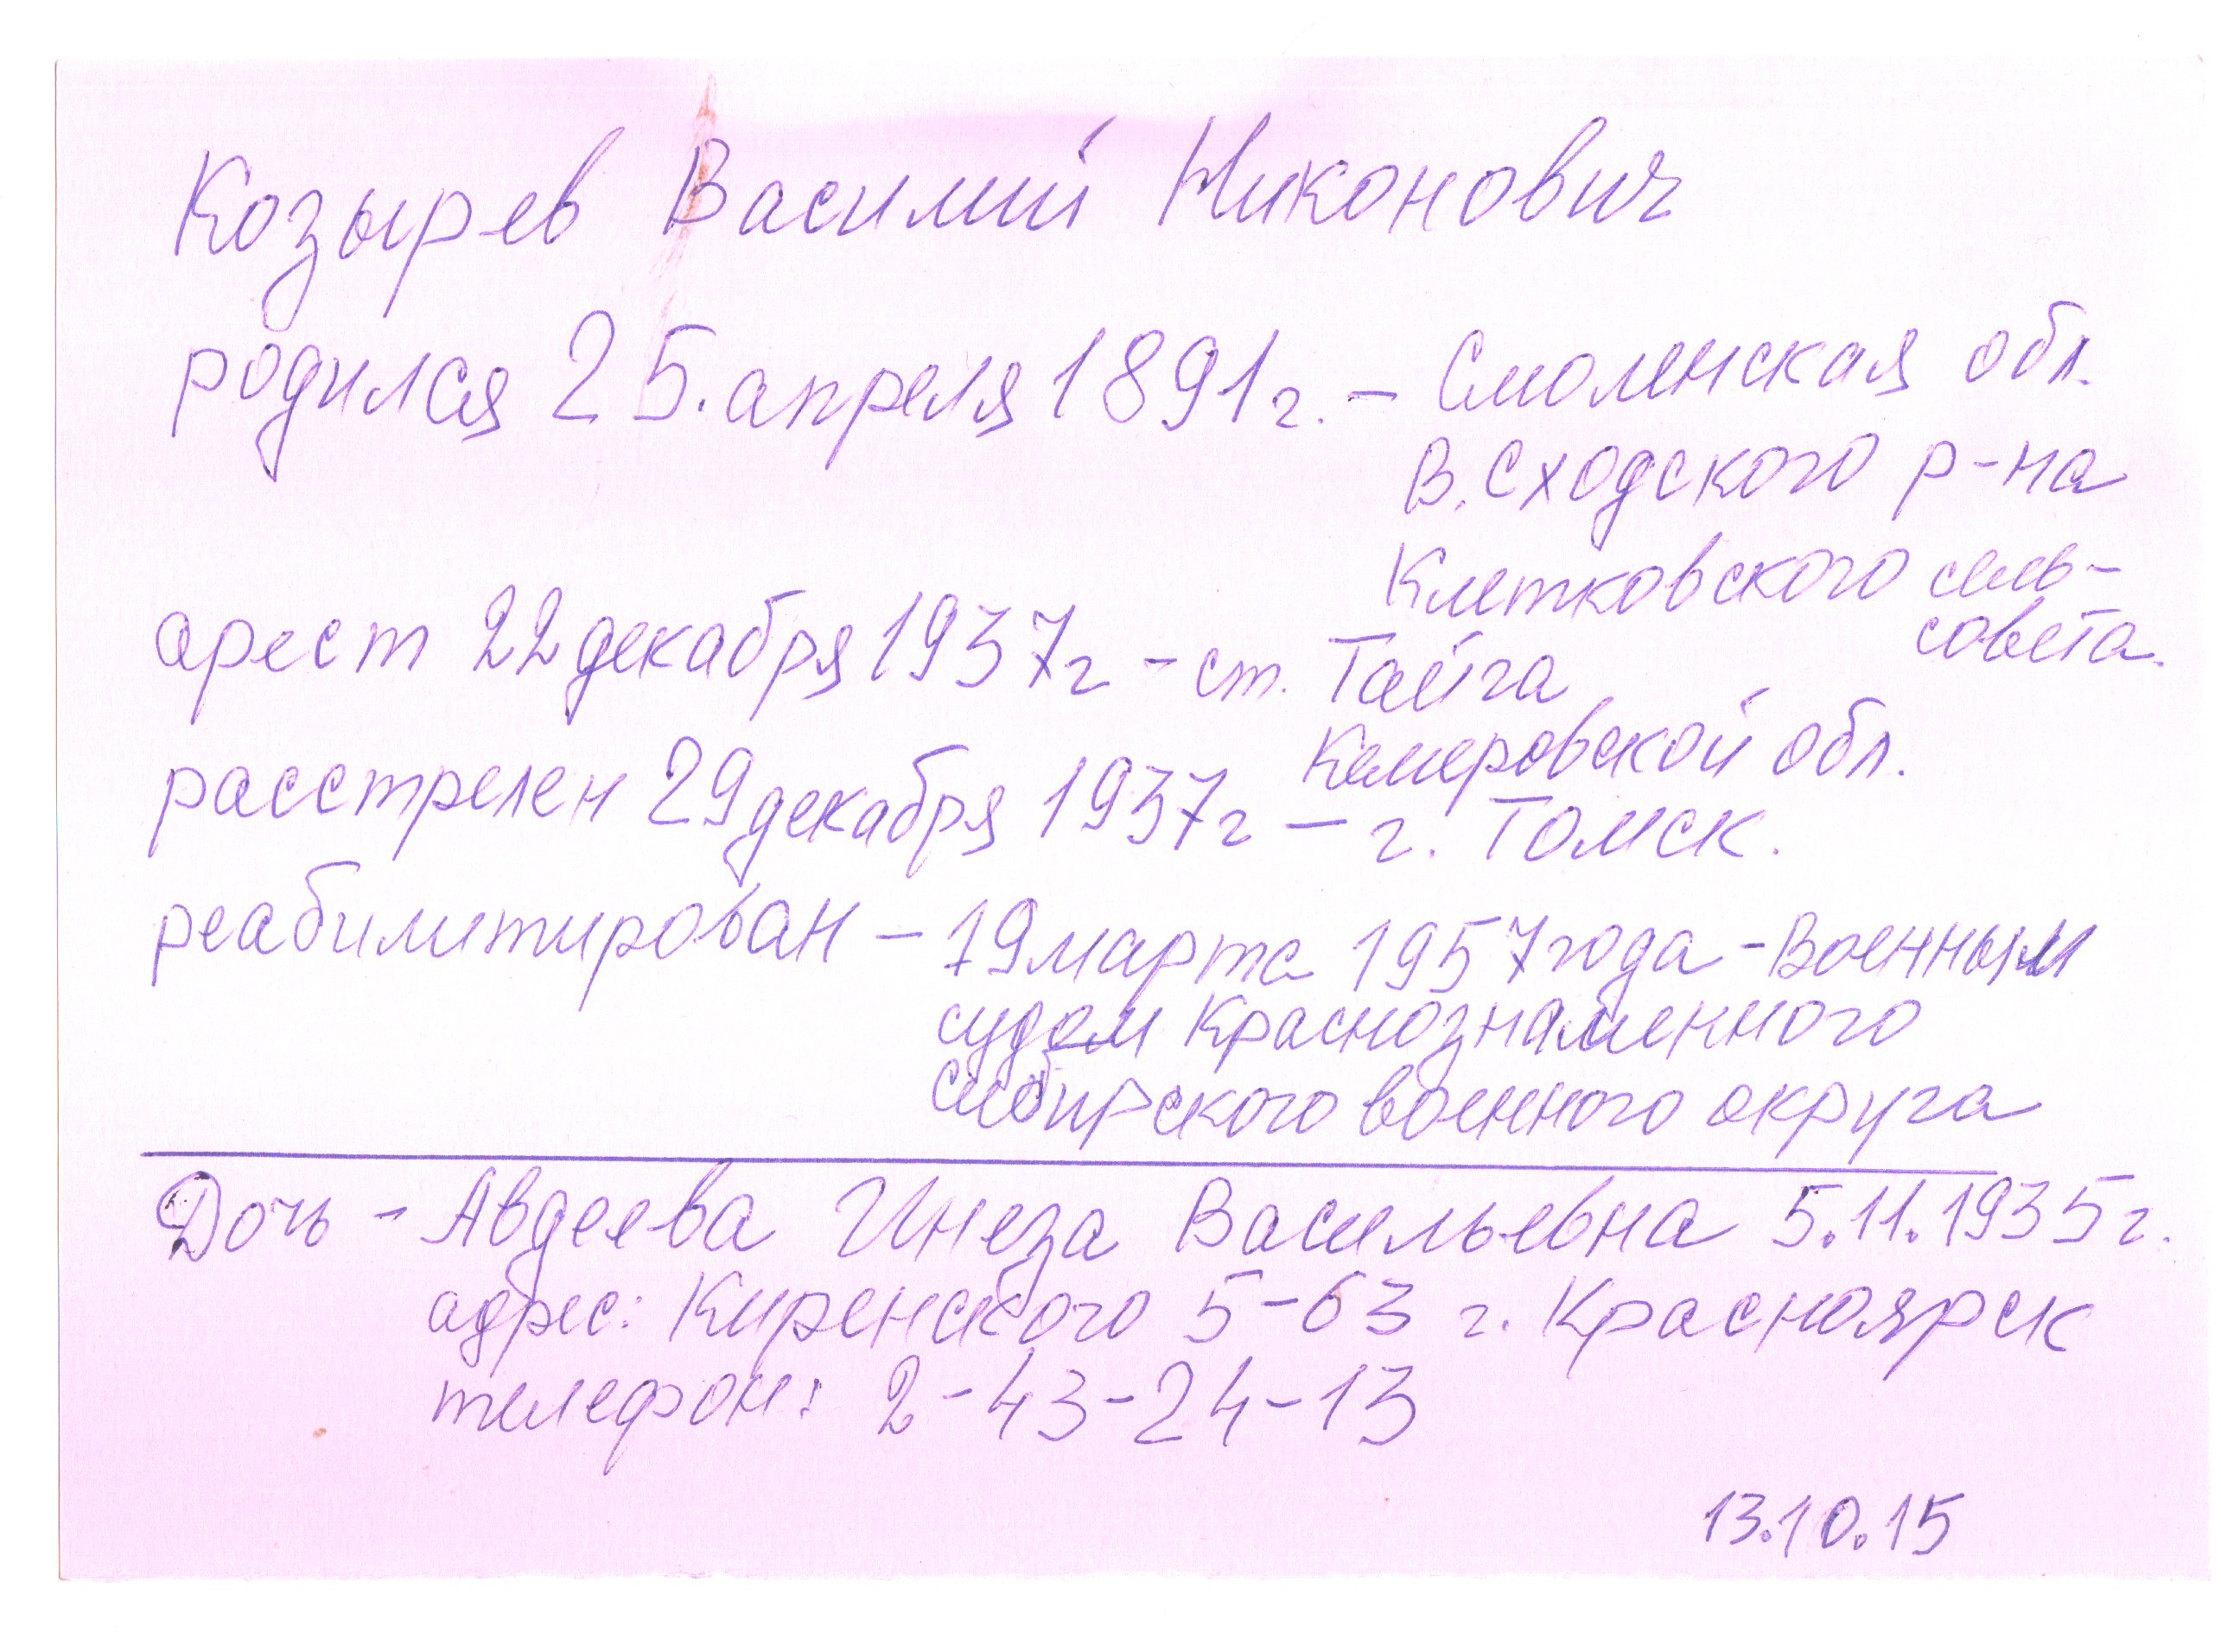 Козырев Василий Никонович
родился 25. апреля 1891г. – Смоленская обл.
В. Сходского р-на
Клетковского сель-
совета.
арест 22 декабря 1937г – ст. Тайга
Кемеровской обл.
расстрелен 29 декабря 1937г – г. Томск.
реабилитирован – 19 марта 1957 года – Военным
судом Краснознаменного
Сибирского военного округа
Дочь – Авдеева Инеза Васильевна 5.11.1935г.
адрес: Киренского 5-63 г. Красноярск
телефон: 2-43-24-13
13.10.15